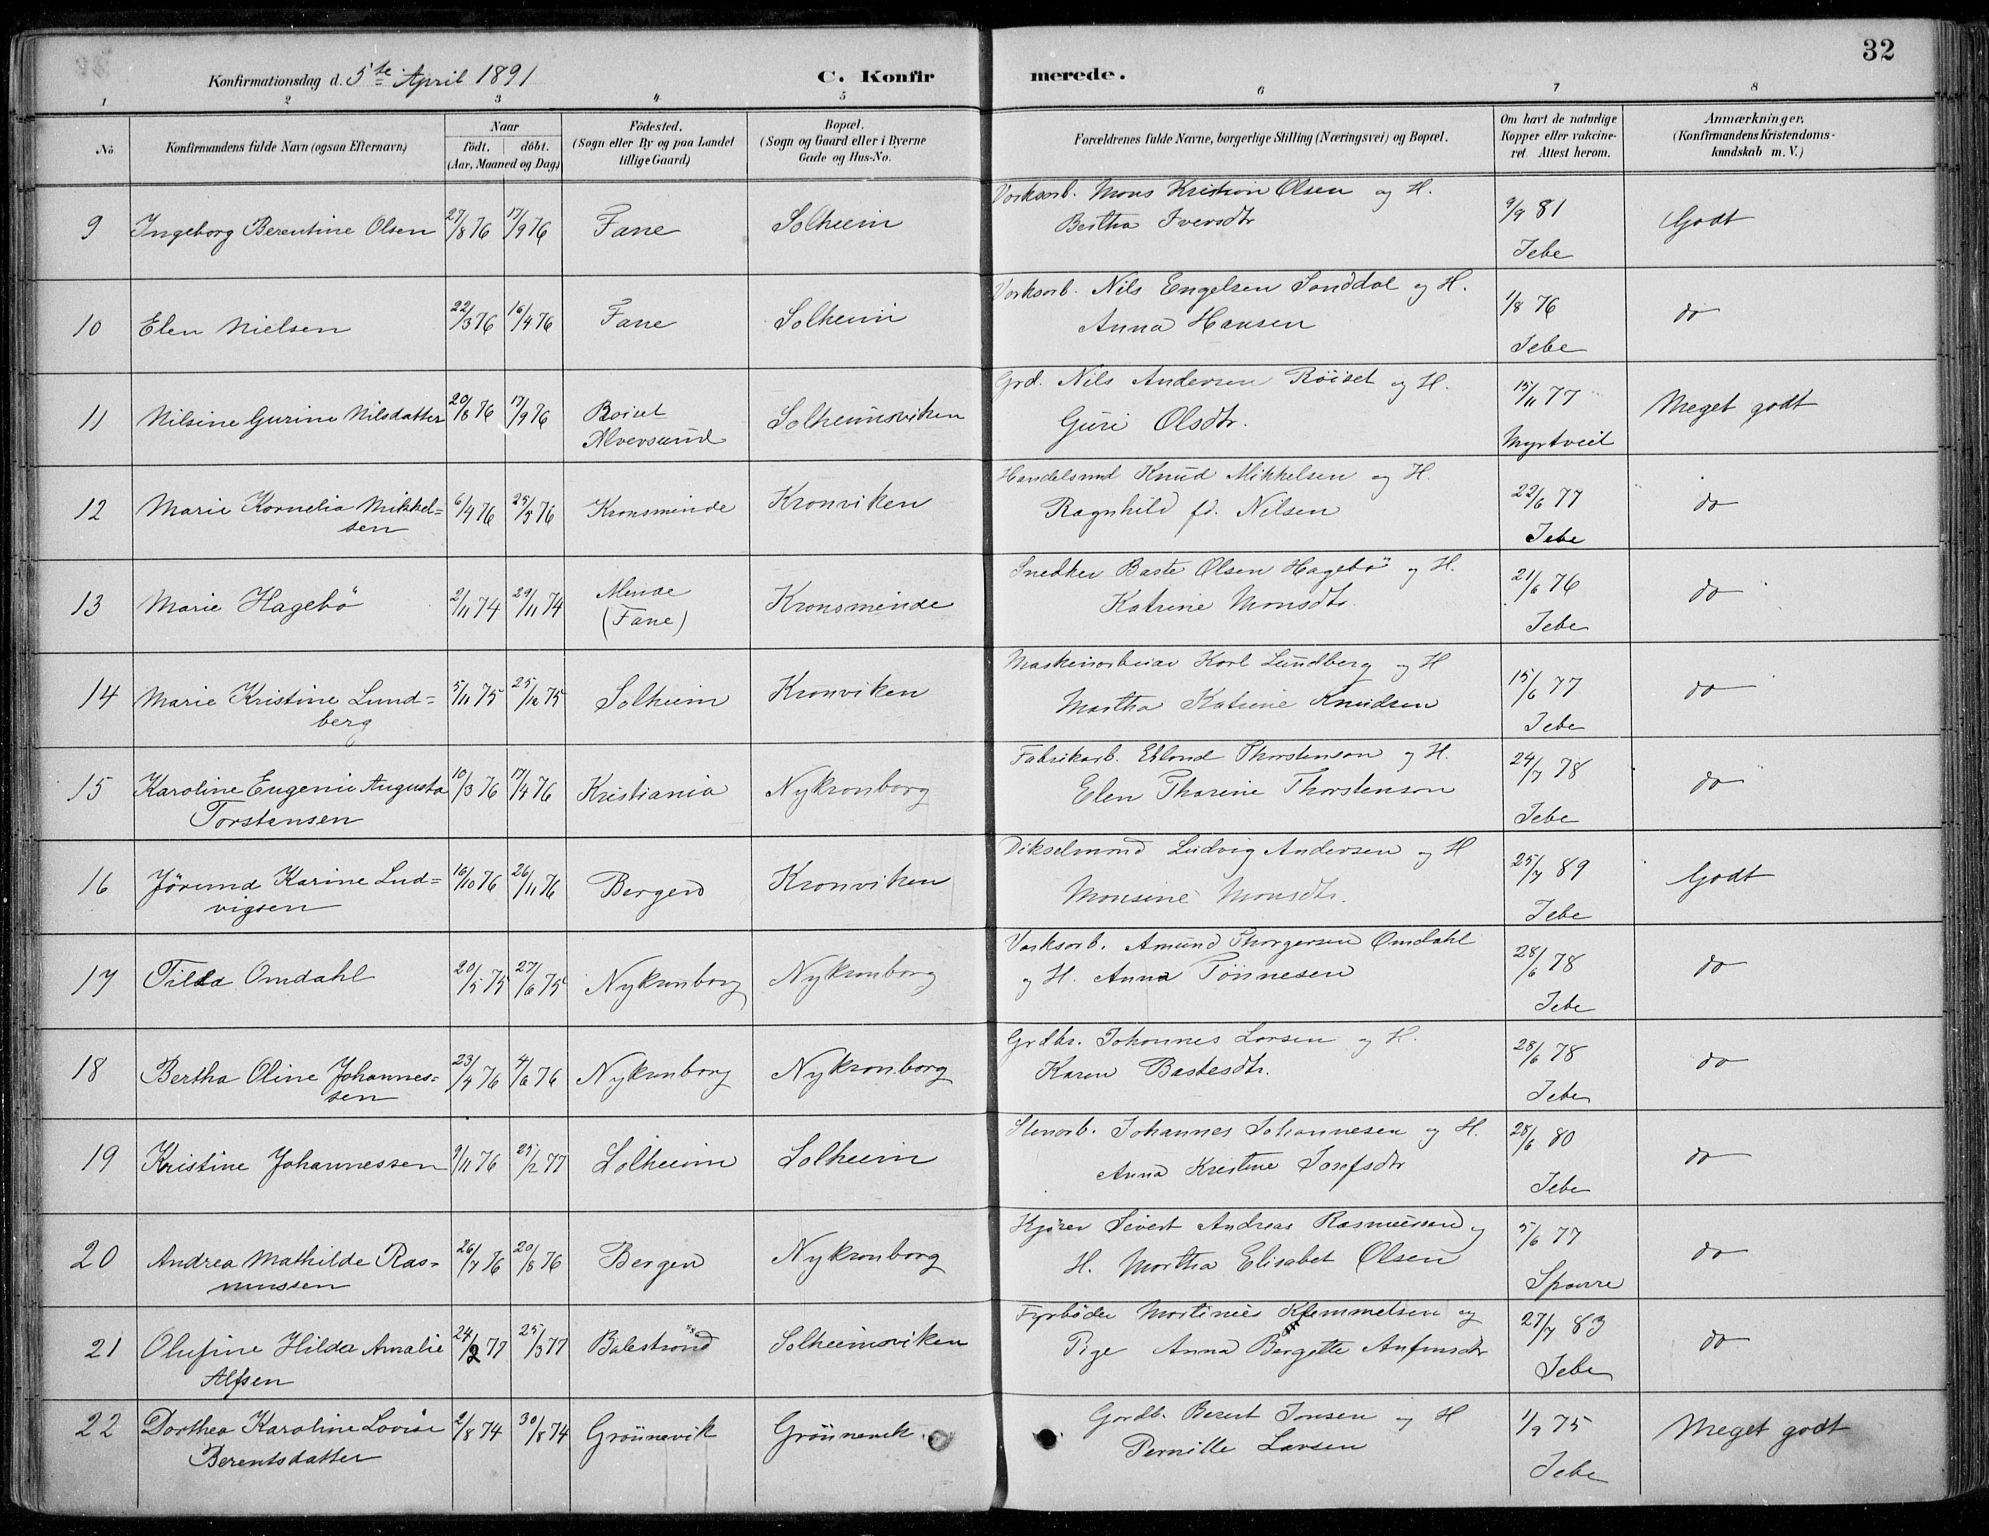 32
Konfirmationsdag d. 5te April 1891
C. Konfirmerede.
1 2 3 4 5 6 7 8
No
Konfirmandens fulde Navn (ogsaa Efternavn)
Naar
födt. döbt.
(Aar, Maaned og Dag)
Födested.
(Sogn eller By og paa Landet
tillige Gaard)
Bopæl.
(Sogn og Gaard eller i Byerne
Gade og Hus-No.
Forældrenes fulde Navne, borgerlige Stilling (Næringsvei) og Bopæl.
Om havt de naturlige
Kopper eller vakcine-
ret. Attest herom.
Anmærkninger,
(Konfirmandens Kristendoms-
kundskab m. V.)
9 Ingeborg Berentine Olsen 27/8 76 17/9 76 Fane Solheim
Værksarb. Mons Kristian Olsen og H.
Bertha Iversdtr
9/9 81
Jebe
Godt
10 Elen Nielsen 22/3 76 16/4 76 Fane Solheim
Værksarb. Nils Engelsen Sanddal og H.
Anna Hansen
1/8 76
Jebe
do
11 Nilsine Gurine Nilsdatter 20/8 76 17/9 76 Roiset
Alversund
Solheimsviken
Grd. Nils Andersen Röiset og H.
Guri Olsdtr.
15/11 77
Myrtveit
Meget godt
12 Marie Kornelia Mikkel=
sen
6/4 76 25/5 76 Kronsminde Kronviken
Handelsmd Knud Mikkelsen og H.
Ragnhild fd. Nilsen
22/6 77
Jebe
do
13 Marie Hagebö 2/11 74 29/11 74 Minde
(Fane)
Kronsminde
Snedker Baste Olsen Hagebö og H.
Katrine Monsdtr.
21/6 76
Jebe
do
14 Marie Kristine Lund=
berg
5/11 75 25/12 75 Solheim Kronviken
Maskinarbeider Karl Lundberg og H
Martha Katrine Knudsen
15/6 77
Jebe
do
15 Karoline Eugenie Augusta
Torstensen
10/3 76 17/4 76 Kristiania Nykronborg
Fabrikarb. Erland Thorstenson og H.
Elen Tharine Thorstenson
24/7 78
Jebe
do
16 Jörund Karine Lud=
vigsen
16/10 76 26/11 76 Bergen Kronviken
Dikselmand Ludvig Andersen og H
Monsine Monsdtr.
25/7 89
Jebe
Godt
17 Tilda Omdahl 20/5 75 27/6 75 Nykronborg Nykronborg
Værksarb. Amund Thorgersen Omdahl
og H. Anna Tönnesen
28/6 78
Jebe
do
18 Bertha Oline Johannes=
sen
23/4 76 4/6 76 Nykronborg Nykronborg
Grdbr. Johannes Larsen og H.
Karen Bastesdtr.
28/6 78
Jebe
do
19 Kristine Johannessen 9/11 76 25/2 77 Solheim Solheim
Stenarb. Johannes Johannesen og H.
Anna Kristine Josefsdtr
28/6 80
Jebe
do
20 Andrea Mathilde Ras=
mussen
26/7 76 20/8 76 Bergen Nykronborg
Kjører Sivert Andreas Rasmussen og
H. Martha Elisabet Olsen
5/6 77
Sparre
do
21 Olufine Hilda Amalie
Alfsen
24/2 77 25/3 77 Balestrand Solheimsviken
Fyrböder Martinius Klemmetsen og
Pige Anna Bergitte Anfinsdtr
27/7 83
Jebe
do
22 Dorthea Karoline Lovise
Berentsdatter
2/8 74 30/8 74 Grönnevik Grönnevik
Gardb. Berent Jonsen og H
Pernille Larsen
1/9 75
Jebe
Meget godt